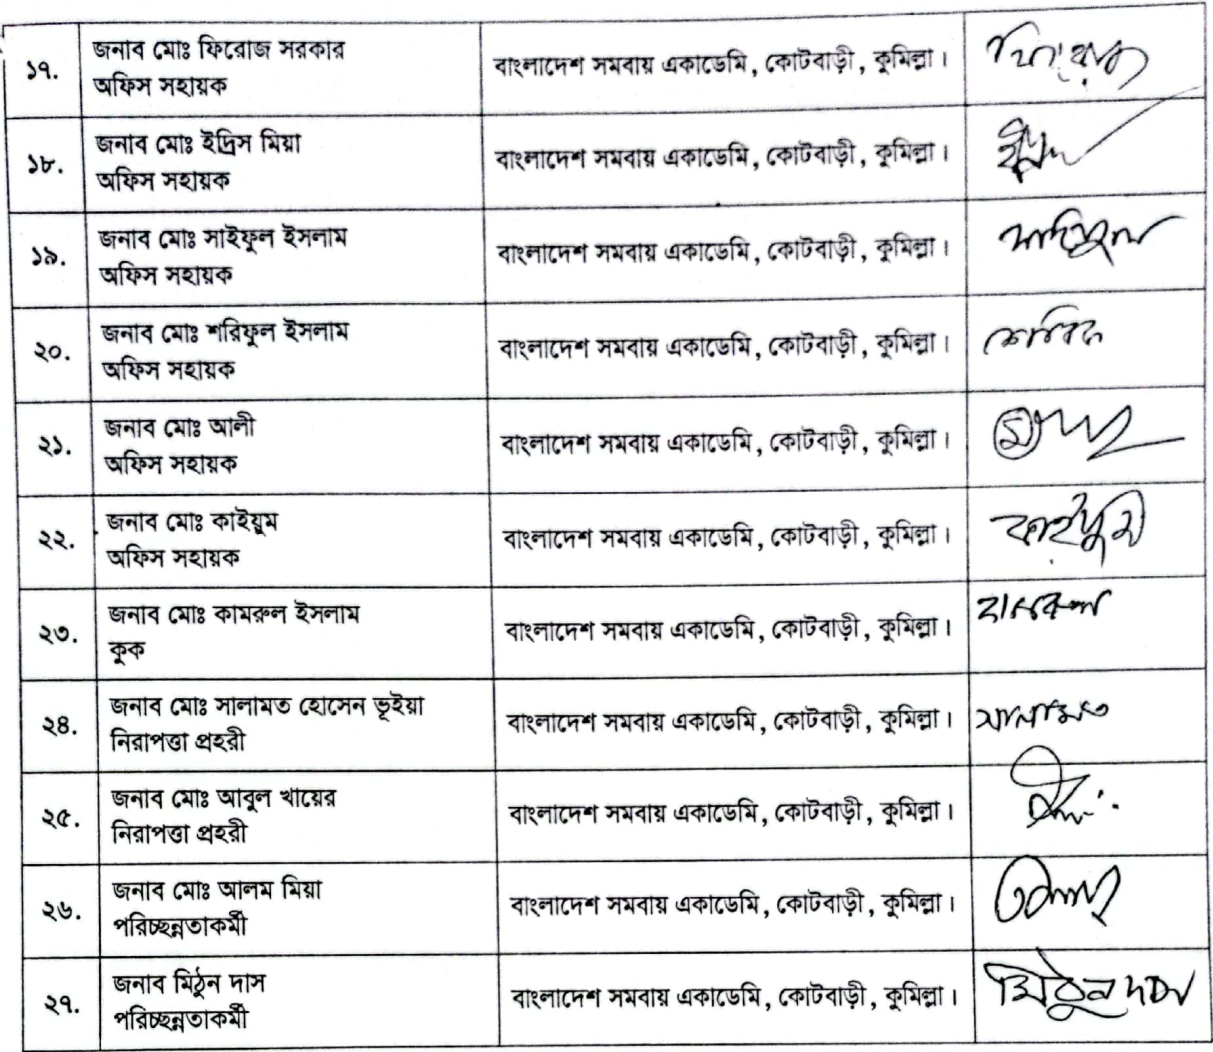 ১৭.
জনাব মোঃ ফিরোজ সরকার
অফিস সহায়ক
বাংলাদেশ সমবায় একাডেমি, কোটবাড়ী, কুমিল্লা।
১৮.
জনাব মোঃ ইদ্রিস মিয়া
অফিস সহায়ক
বাংলাদেশ সমবায় একাডেমি, কোটবাড়ী, কুমিল্লা।
১৯.
জনাব মোঃ সাইফুল ইসলাম
অফিস সহায়ক
বাংলাদেশ সমবায় একাডেমি, কোটবাড়ী, কুমিল্লা।
২০.
জনাব মোঃ শরিফুল ইসলাম
অফিস সহায়ক
বাংলাদেশ সমবায় একাডেমি, কোটবাড়ী, কুমিল্লা।
২১.
জনাব মোঃ আলী
অফিস সহায়ক
বাংলাদেশ সমবায় একাডেমি, কোটবাড়ী, কুমিল্লা।
২২.
জনাব মোঃ কাইয়ুম
অফিস সহায়ক
বাংলাদেশ সমবায় একাডেমি, কোটবাড়ী, কুমিল্লা।
কাইয়ুম
২৩.
জনাব মোঃ কামরুল ইসলাম
কুক
বাংলাদেশ সমবায় একাডেমি, কোটবাড়ী, কুমিল্লা।
২৪.
জনাব মোঃ সালামত হোসেন ভূইয়া
নিরাপত্তা প্রহরী
বাংলাদেশ সমবায় একাডেমি, কোটবাড়ী, কুমিল্লা।
সালামত
২৫.
জনাব মোঃ আবুল খায়ের
নিরাপত্তা প্রহরী
বাংলাদেশ সমবায় একাডেমি, কোটবাড়ী, কুমিল্লা।
২৬.
জনাব মোঃ আলম মিয়া
পরিচ্ছন্নতাকর্মী
বাংলাদেশ সমবায় একাডেমি, কোটবাড়ী, কুমিল্লা।
২৭.
জনাব মিঠুন দাস
পরিচ্ছন্নতাকর্মী
বাংলাদেশ সমবায় একাডেমি, কোটবাড়ী, কুমিল্লা।
মিঠুন দাস